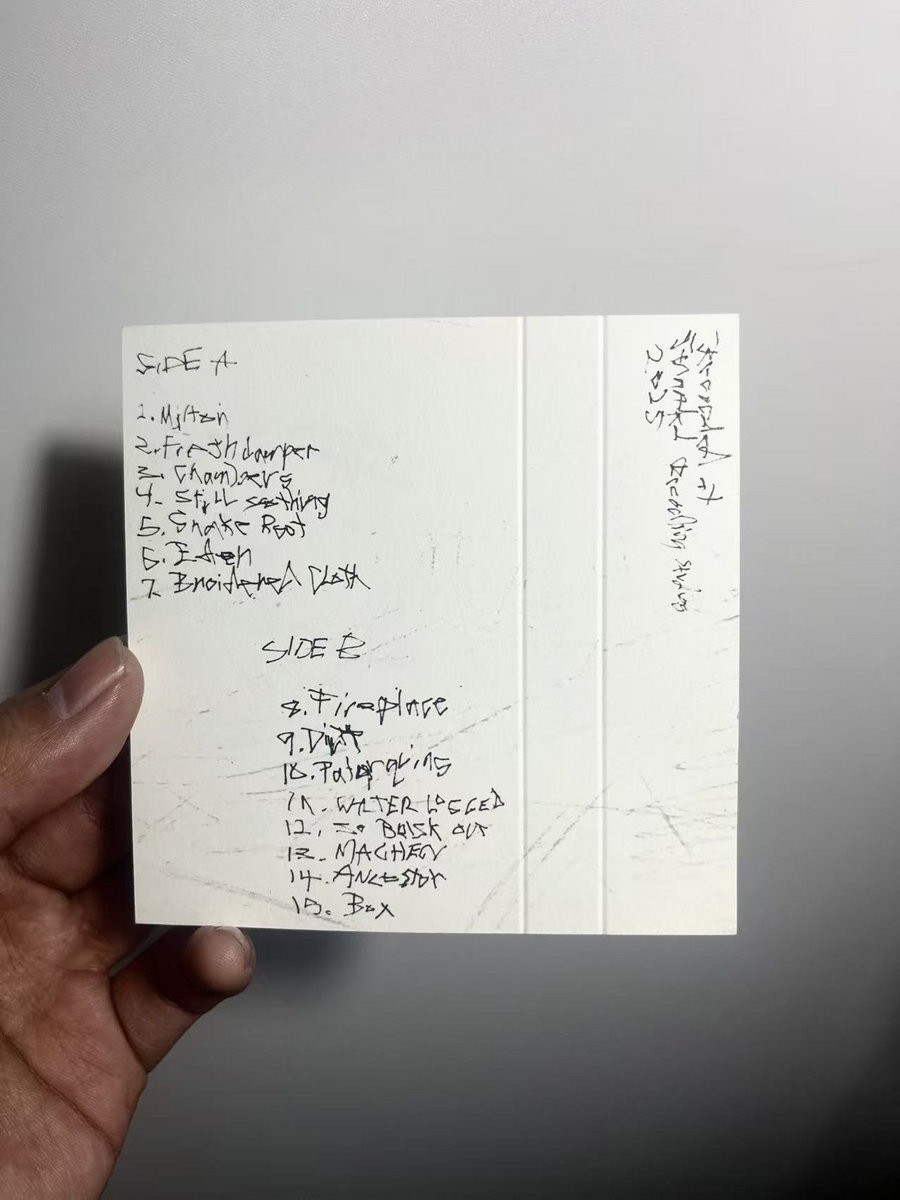 SIDE A
1. Milton
2. Fresh damper
3. Chambers
4. Still soothing
5. Snake Root
6. Eden
7. Broidered Cloth
SIDE B
8. Fireplace
9. Dirt
10.
11. WATER LOGGED
12. BASK OUT
13. MACHEN
14. ANCESTOR
15. Box
Recorded at
Recording
2025